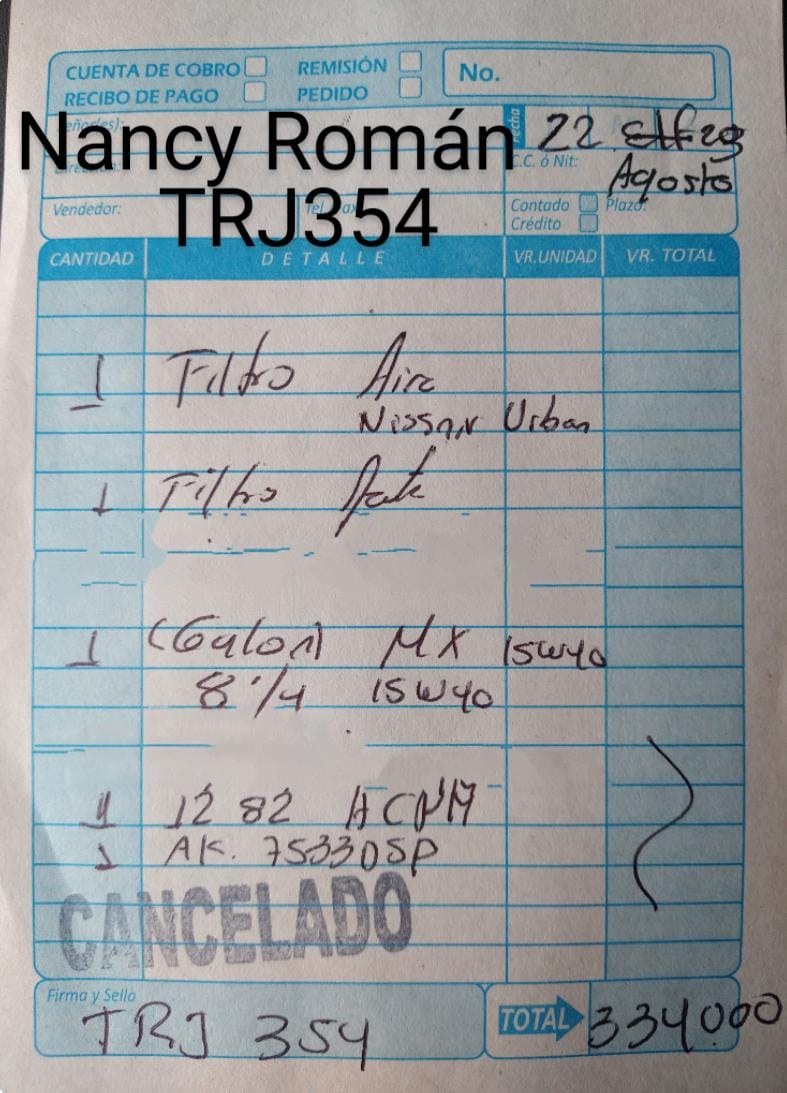 CUENTA DE COBRO REMISIÓN No.
RECIBO DE PAGO PEDIDO
Nancy Román
TRJ354
Fecha 22
Agosto
C.C. ó Nit:
Vendedor:
Contado Plazo:
Crédito
CANTIDAD DETALLE VR.UNIDAD VR. TOTAL
1 Filtro Aire
Nissan Urban
1 Filtro
1 (Galon) MX 15W40
8 1/4 15W40
1 1282 ACPM
1 AK. 75330SP
CANCELADO
Firma y Sello
TRJ 354
TOTAL 334000